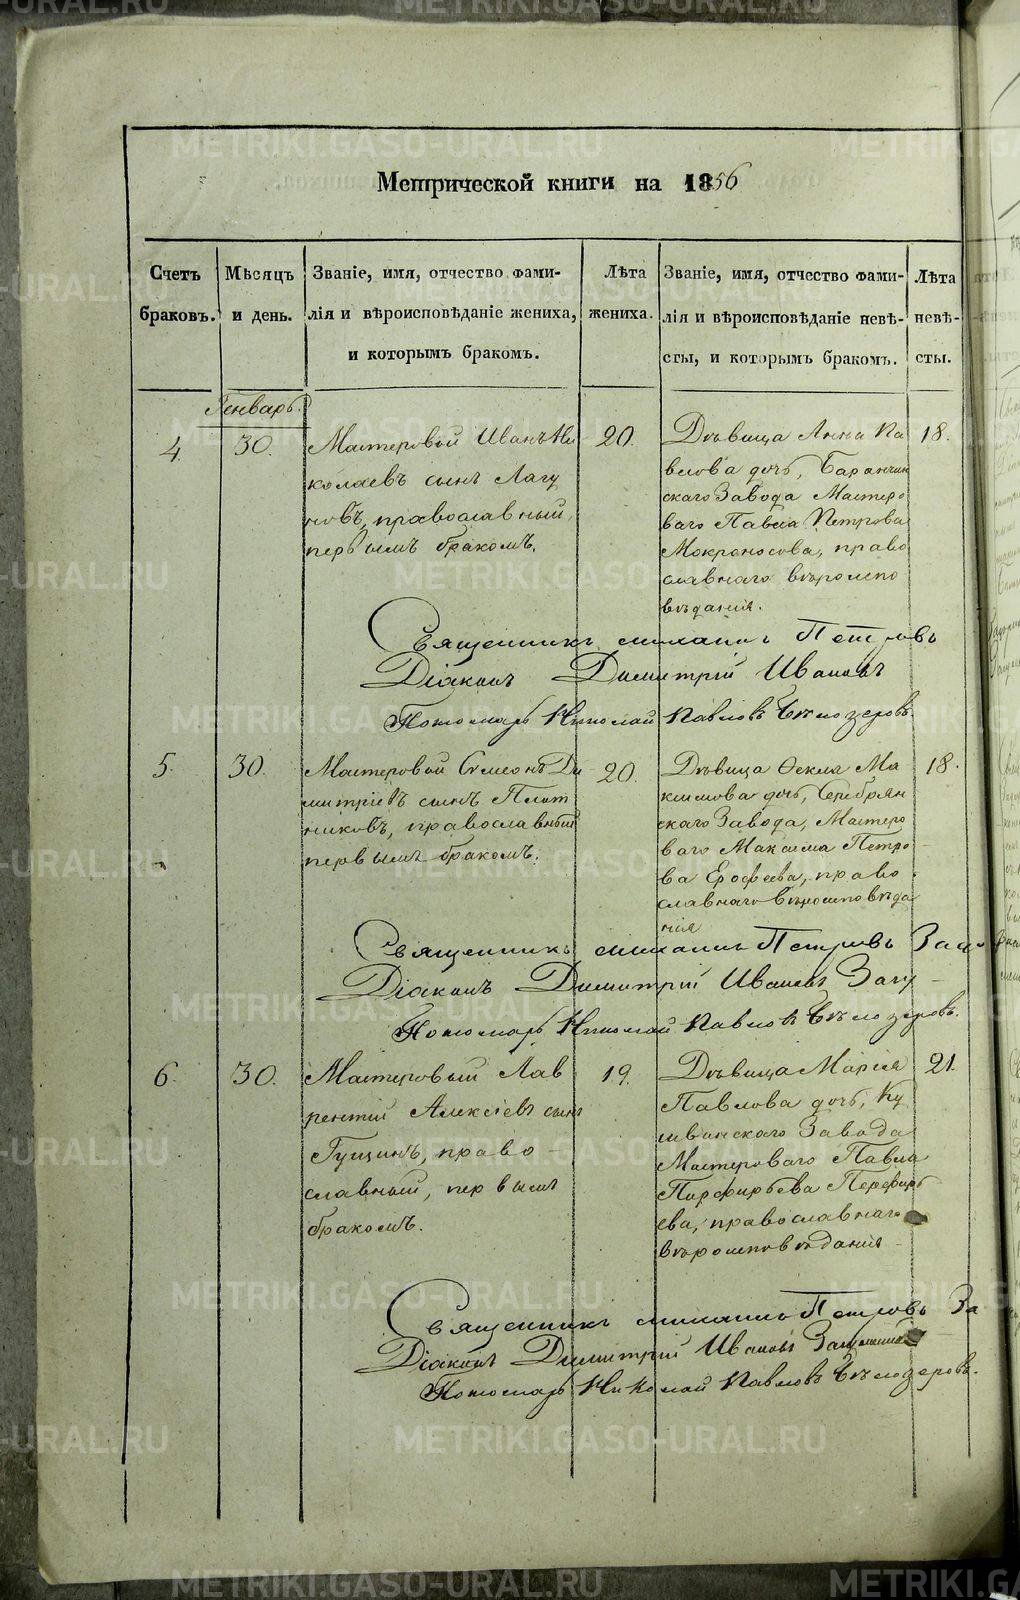 Метрической книги на 1856
Счетъ браковъ.
Мѣсяцъ и день.
Званіе, имя, отчество фами-
лія и вѣроисповѣданіе жениха,
и которымъ бракомъ.
Лѣта жениха.
Званіе, имя, отчество фами-
лія и вѣроисповѣданіе невѣ-
сты, и которымъ бракомъ.
Лѣта невѣ-
сты.
Генварь.
4.
30.
Мастеровой Иванъ Ни
колаевъ сынъ Лагу
новъ, православный,
первымъ бракомъ.
20.
Дѣвица Анна Па
влова дочь, Баранчин
скаго Завода Мастеро
ваго Павла Петрова
Мокроносова, право
славнаго вѣроиспо
вѣданія.
18.
Священникъ Михаилъ Петровъ
Діаконъ Димитрій Ивановъ
Пономарь Николай Павловъ Бѣлозеровъ
5.
30.
Мастеровой Симеонъ Ди
митріевъ сынъ Плот
никовъ, православный
первымъ бракомъ.
20.
Дѣвица Ѳекла Ма
ксимова дочь, Серебрян
скаго Завода, Мастеро
ваго Максима Петро
ва Ерофеева, право
славнаго вѣроисповѣда
нія
18.
Священникъ Михаилъ Петровъ
Діаконъ Димитрій Ивановъ
Пономарь Николай Павловъ Бѣлозеровъ.
6.
30.
Мастеровый Лав
рентій Алексѣевъ сынъ
Гущинъ, право
славный, первымъ
бракомъ.
19.
Дѣвица Марія
Павлова дочь, Ку
швинскаго Завода
Мастероваго Павла
Порфирьева Перфирь
ева, православнаго
вѣроисповѣданія
21.
Священникъ Михаилъ Петровъ За
Діаконъ Димитрій Ивановъ
Пономарь Николай Павловъ Бѣлозеровъ.
METRIKI.GASO-URAL.RU